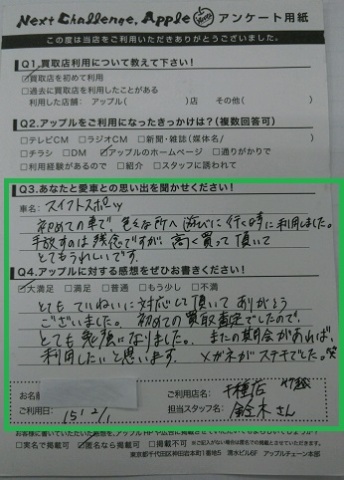 Next Challenge, Apple アンケート用紙
この度は当店をご利用いただきありがとうございました。
Q1.買取店利用について教えて下さい!
☑買取店を初めて利用
□過去に買取店を利用したことがある
利用した店舗: アップル( )店 その他( )
Q2.アップルをご利用になったきっかけは?(複数回答可)
□テレビCM □ラジオCM □新聞・雑誌(媒体名/ )
□チラシ □DM ☑アップルのホームページ □通りがかりで
□利用経験があるので □紹介 □スタッフに誘われて
Q3.あなたと愛車との思い出を聞かせください!
車名: スイフトスポーツ
初めての車で、色々な所へ遊びに行く時に利用しました。
手放すのは残念ですが、高く買って頂いて
とてもうれしいです。
Q4.アップルに対する感想をぜひお書きください!
☑大満足 □満足 □普通 □もう少し □不満
とてもていねいに対応して頂いてありがとう
ございました。初めての買取査定でしたので、
とても勉強になりました。またの機会があれば、
利用したいと思います。 メガネがステキでした。
お名前
ご利用店名: 千種店
ご利用日: 15'2/1
担当スタッフ名: 鈴木さん
お客様に書いていただいた感想を、アップルHPや広告に掲載させていただいてもよろしいでしょうか?
□実名で掲載可 ☑匿名なら掲載可 □掲載不可 ※ご記入がない場合は匿名での掲載とさせていただきます。
東京都千代田区神田岩本町1番地5 清水ビル6F アップルチェーン本部